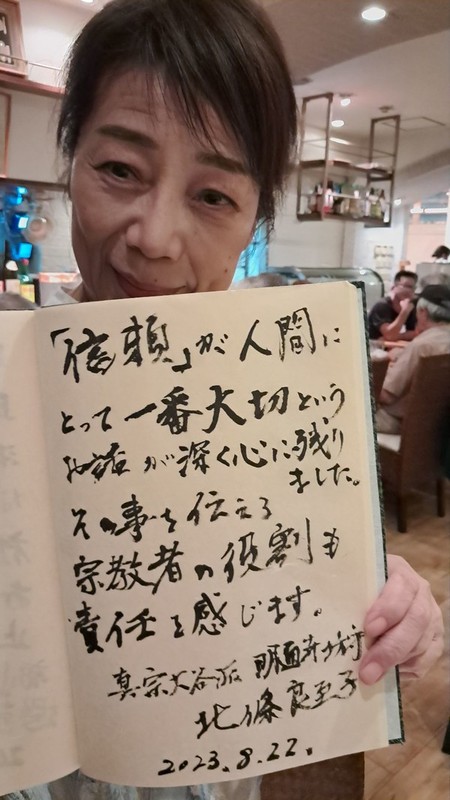 「信頼」が人間に
とって一番大切という
お話が深く心に残り
ました。
その事を伝える
宗教者の役割も
責任を感じます。
真宗大谷派
北條良至子
2023.8.22.